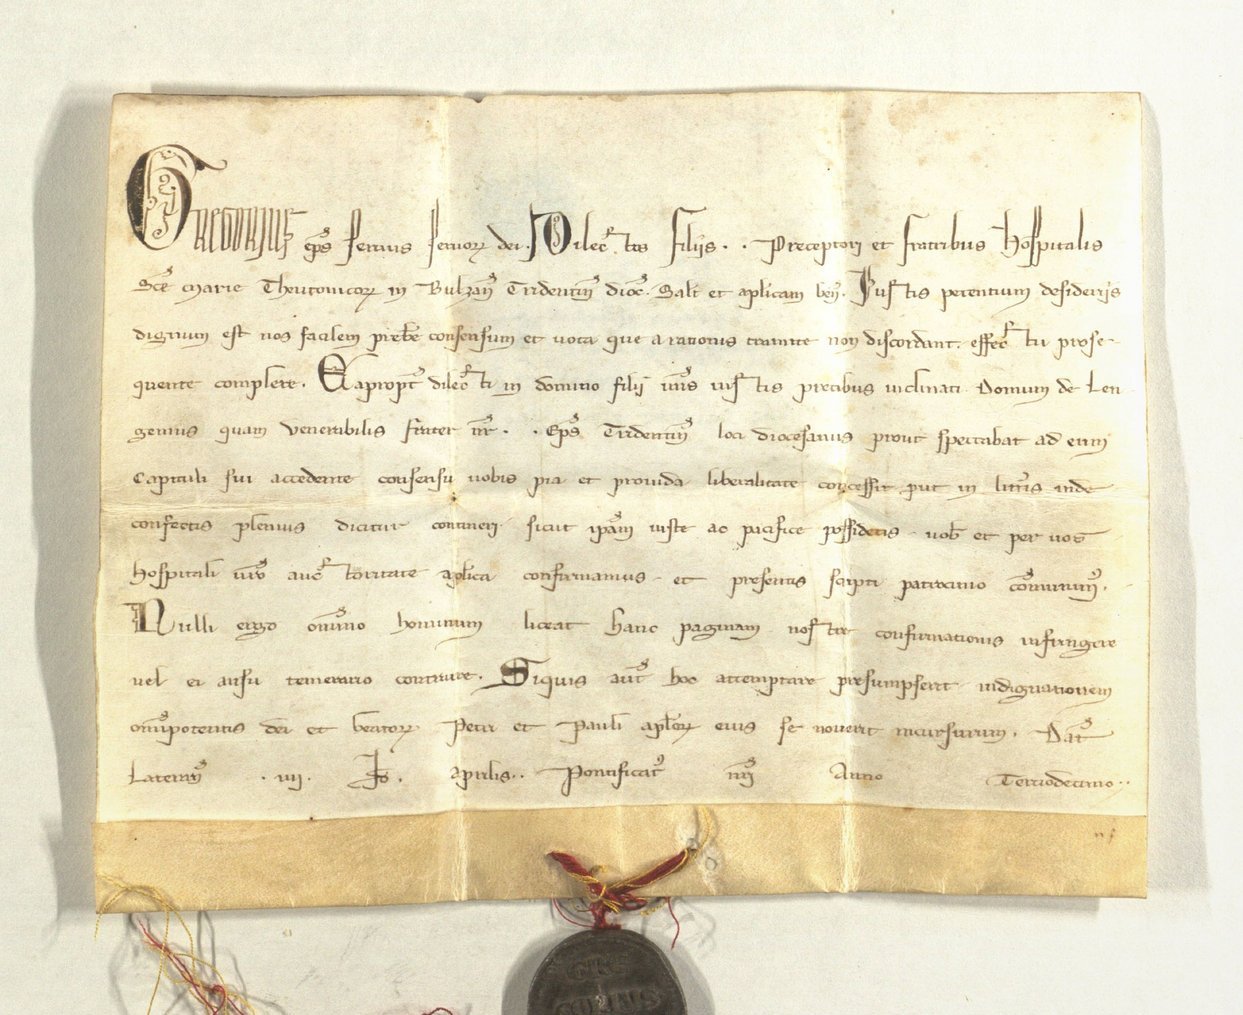 Gregorius eps servus servorꝝ dei. Dilectis filiis . . Preceptori et fratribus Hospitalis
Sce Marie Theutonicorꝝ in Bulzan Tridentin dioc. Salt et aplicam ben. Iustis petentium desideriis
dignum est nos facilem prebe consensum et vota que a rationis tramite non discordant. effectu prose-
quente complere. Eapropt dilecti in domino filii vris iustis precibus inclinati Domum de Len-
gemus quam venerabilis frater nr . . Eps Tridentin loci diocesanus prout spectabat ad eum
Capituli sui accedente consensu vobis pia et provida liberalitate concessit put in litteris inde
confectis plenius dicitur contineri sicut ipam iuste ac pacifice possidetis vob et per vos
Hospitali vro auctoritate aplica confirmamus et presentis scripti patrocinio comunim.
Nulli ergo omino hominum liceat hanc paginam nostre confirmationis infringere
vel ei ausu temerario contraire. Siquis aut hoc attemptare presumpserit indignationem
omipotentis dei et beatorꝝ Petri et Pauli aplorꝝ eius se noverit incursurum. Dat
Lateran . iiii . Id . Aprilis . . Pontificat nri Anno Tertiodecimo . .
GRE
GORIUS